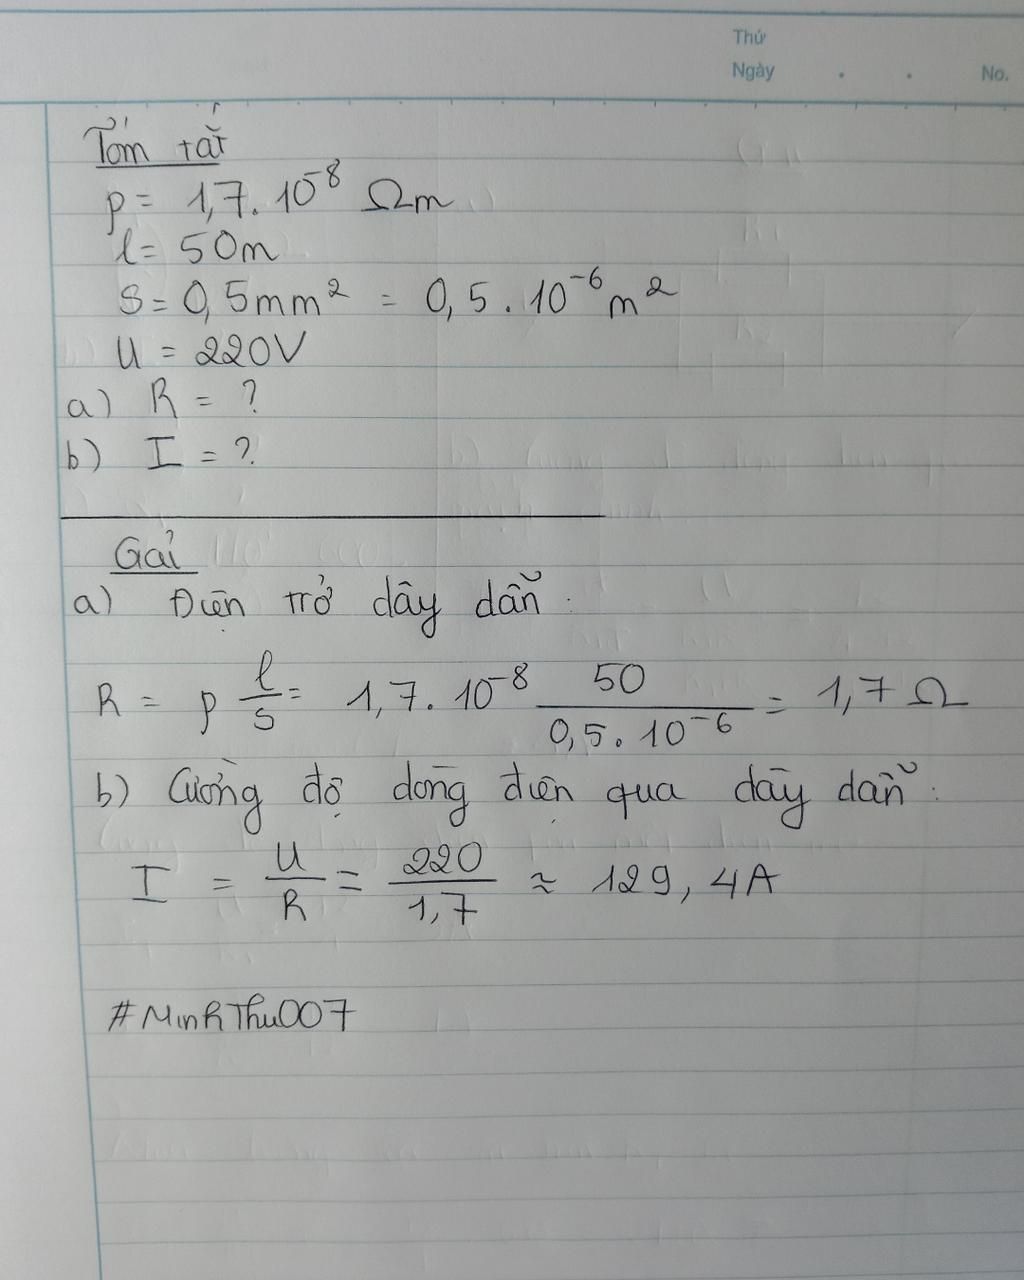 Thứ
Ngày . . No.
Tóm tắt
ρ = 1,7.10⁻⁸ Ωm
l = 50m
S = 0,5mm² = 0,5.10⁻⁶m²
U = 220V
a) R = ?
b) I = ?
Gải
a) Điện trở dây dẫn:
R = ρ l/S = 1,7.10⁻⁸ 50/0,5.10⁻⁶ = 1,7 Ω
b) Cường độ dòng điện qua dây dẫn:
I = U/R = 220/1,7 ≈ 129,4A
#MinhThu007